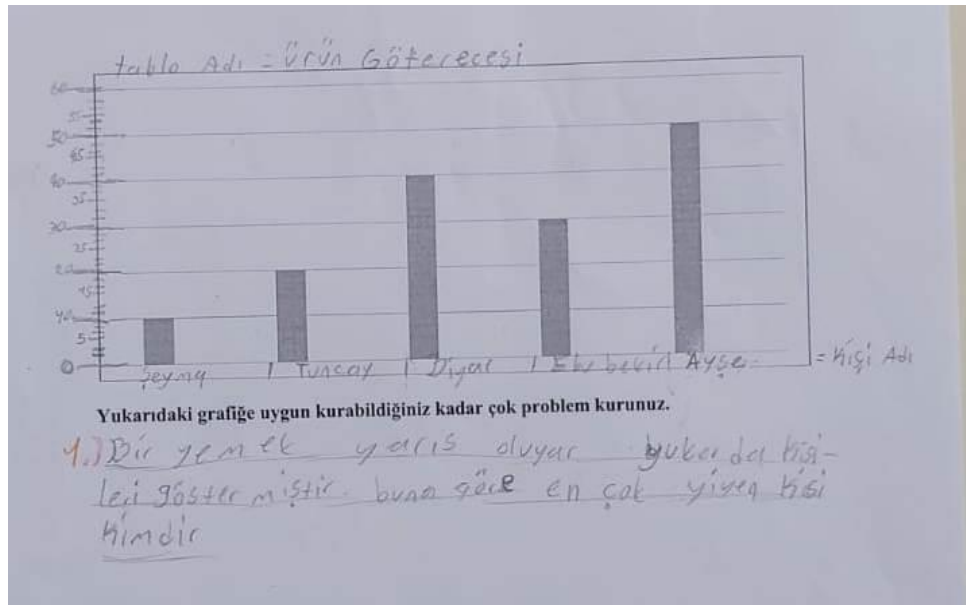 tablo Adı = ürün Göterecesi
60
55
50
45
40
35
30
25
20
15
10
5
0
Şeyma | Tuncay | Diyar | Ebubekir | Ayşe = Kişi Adı
Yukarıdaki grafiğe uygun kurabildiğiniz kadar çok problem kurunuz.
1.) Bir yemek yarıs oluyar yukarda kisi-
leri göstermiştir. buna göre en çok yiyen kisi
kimdir